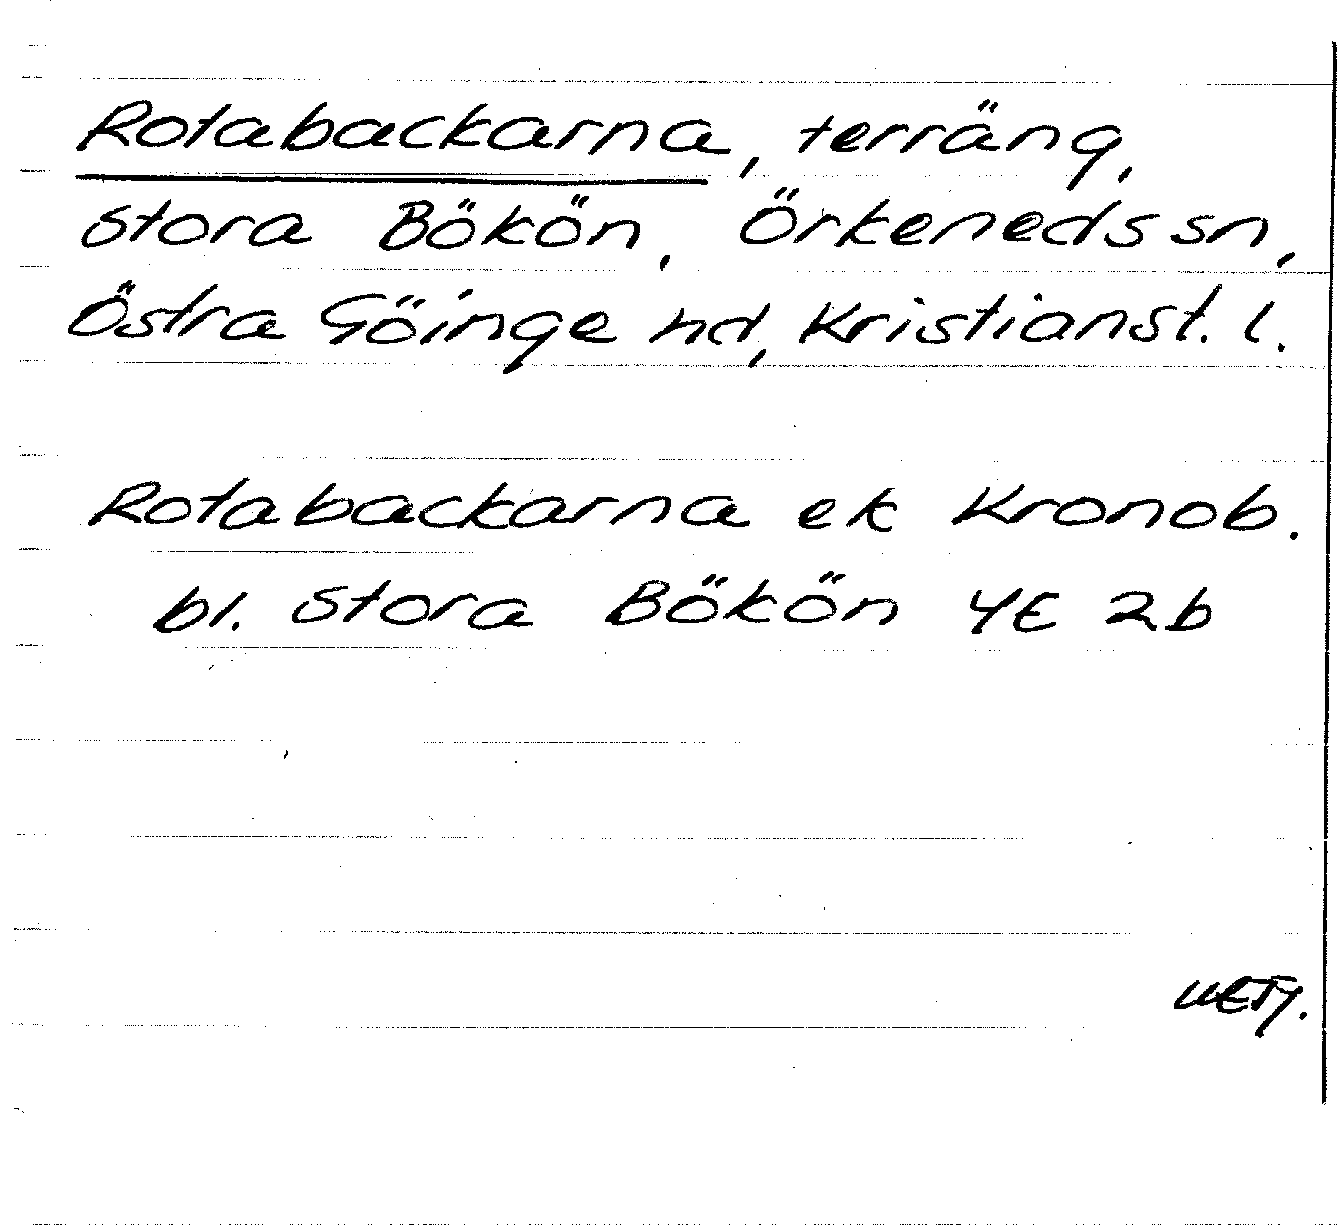 Rotabackarna, terräng,
Stora Bökön, Örkeneds sn,
Östra Göinge hd, Kristianst. l.
Rotabackarna ek Kronob.
bl. Stora Bökön 4E 2b